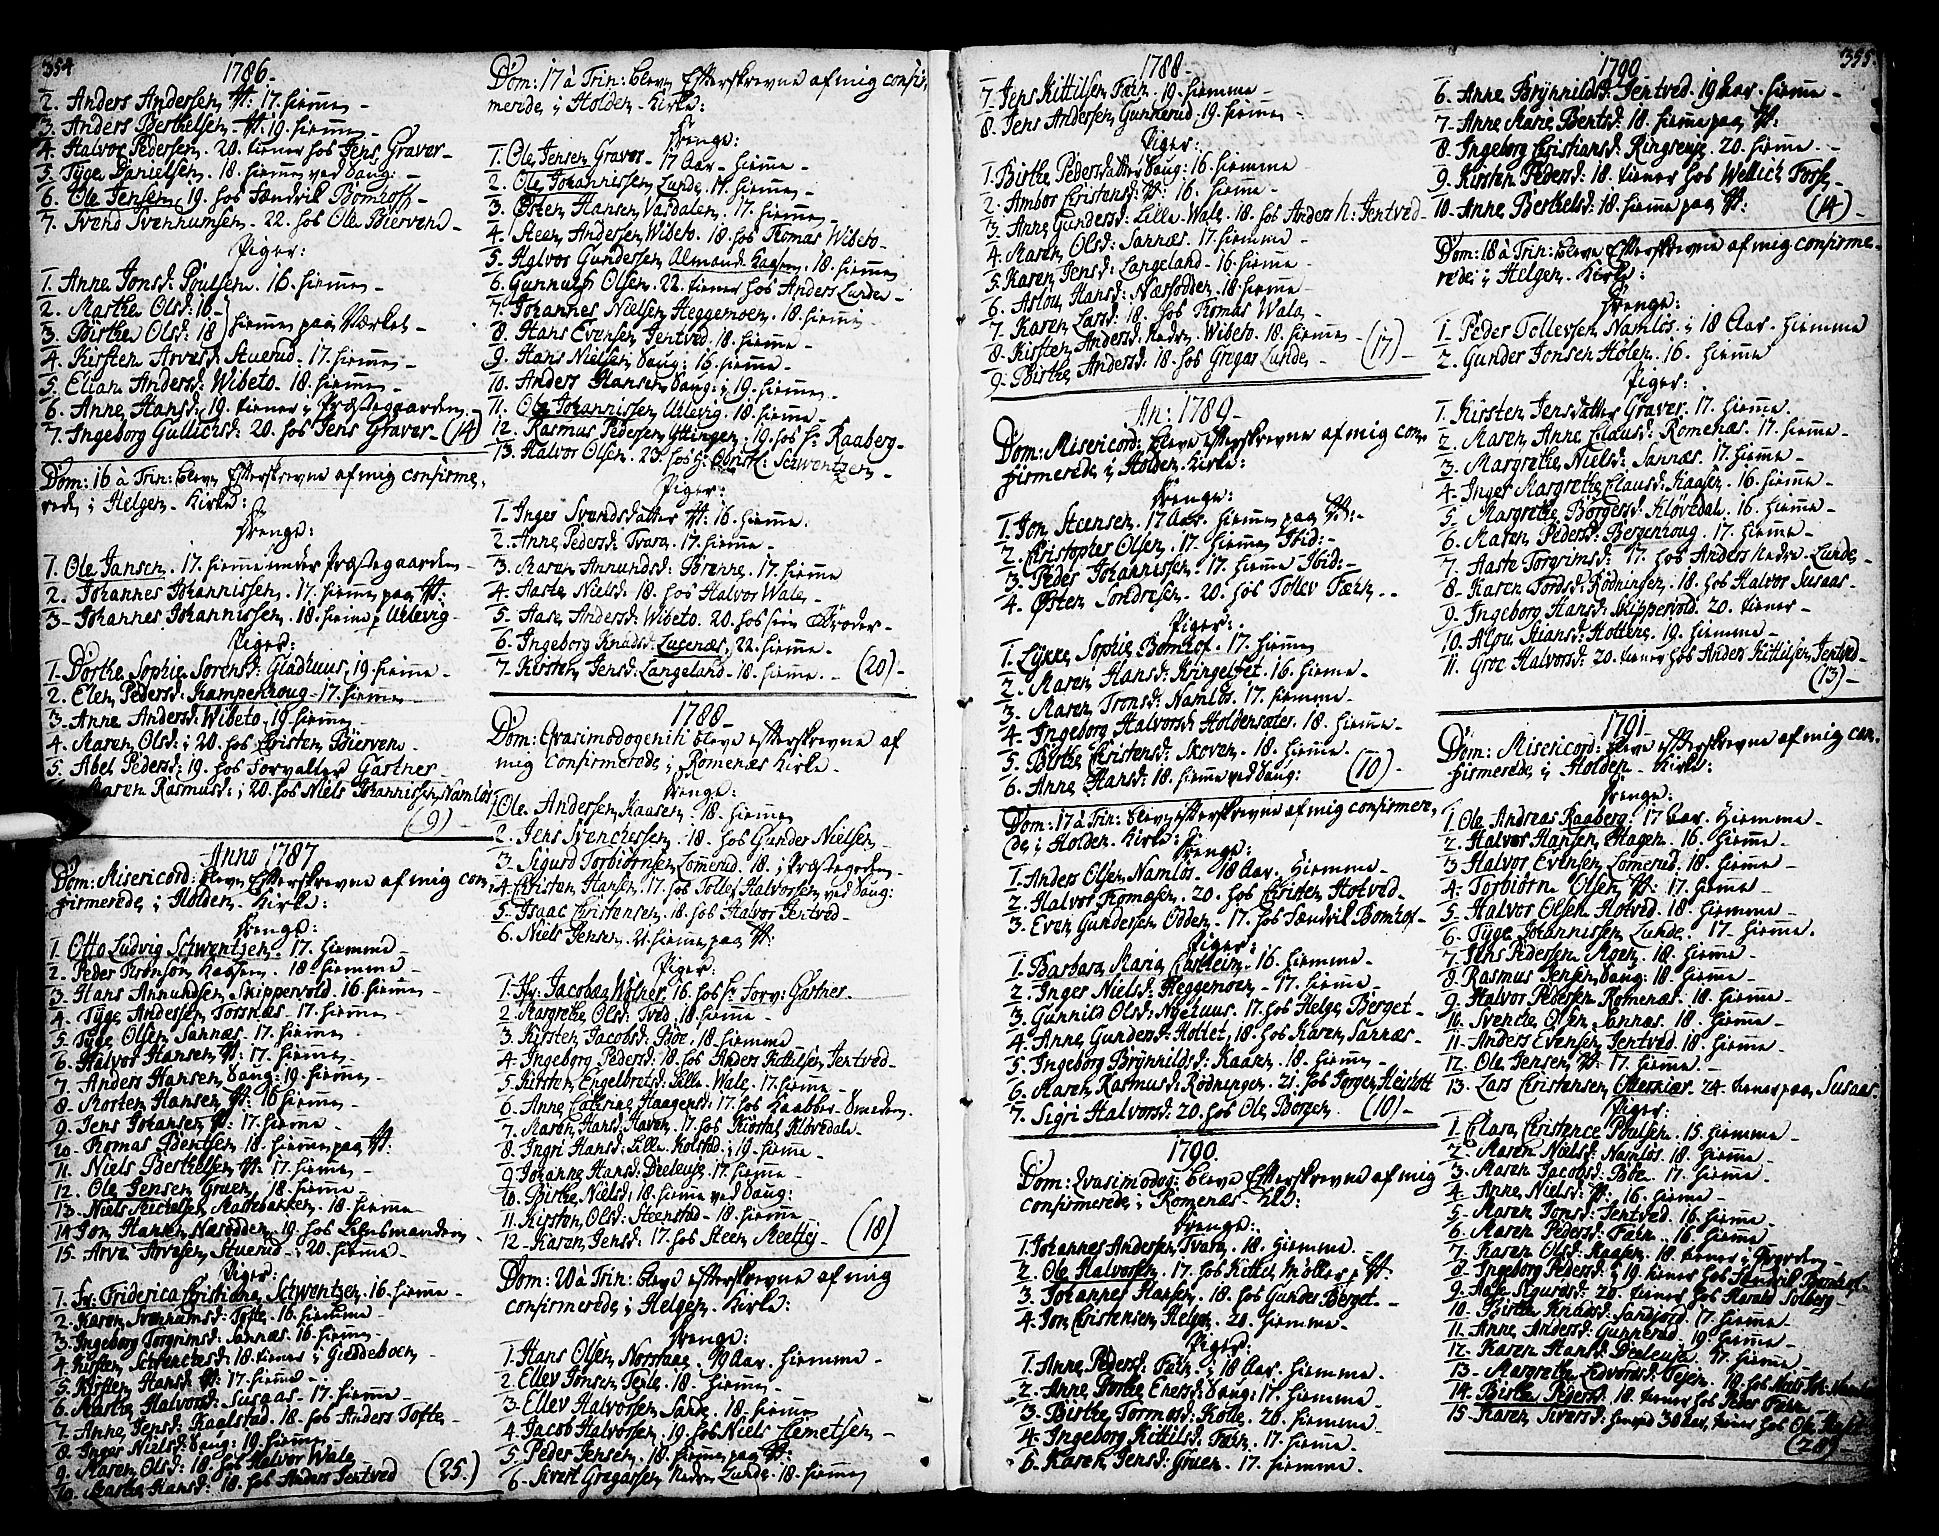 354
1786
2. Anders Andersen V: 17. hieme
3. Anders Berthelsen V: 19. hieme
4. Halvor Pedersen. 20. tiener hos Jens Graver
5. Tyge Danielsen. 18. hieme ved Saug:
6. Ole Jensen, 19. hos Fendrik Bomhoff
7. Svend Svenkumsen. 22. hos Ole Bierven
Piger:
1. Anne Jonsd: Poulsen. 16. hieme
2. Marthe Olsd: 16
3. Birthe Olsd: 18 hieme paa Værket
4. Kirsten Arvesd: Stuerud. 17. hieme
5. Elian Andersd: Wibeto. 18. hieme
6. Anne Hansd: 19. tiener i Præstegaarden
7. Ingeborg Gullichsd: 20. hos Jens Graver (14)
Dom: 16 à Trin: bleve Efterskrevne af mig confirme,
rede i Helgen Kirke:
Drenge:
1. Ole Jansen. 17. hieme under Præstegaarden
2. Johannes Johannissen. 17. hieme paa V:
3. Johannes Johannissen. 18. hieme p Ullevig
Piger:
1. Dorthe Sophie Sørensd: Gladhuus, 19. hieme
2. Elen Pedersd: Kampenhoug. 17. hieme
3. Anne Andersd: Wibeto, 19. hieme
4. Maren Olsd: i 20. hos Christen Bierven
5. Abel Pedersd: 19. hos Forvalter Gartner
Maren Rasmusd: i 20. hos Niels Johannissen Namløs
(9)
Anno 1787
Dom: Misericord: bleve Efterskrevne af mig con,
firmerede i Holden Kirke:
Drenge:
1. Otto Ludvig Schwentzen. 17. hiemme
2. Peder Tronsen Kaasen. 18. hiemme
3. Hans Annundsen Skippervold. 16. hieme
4. Tyge Andersen Torsnæs. 17. hieme
5. Tyge Olsen Sannæs. 17. hieme
6. Halvor Hansen V: 17. hieme
7. Anders Hansen Saug: 19. hieme
8. Morten Hansen V: 16 hieme
9. Jens Johansen V: 17. hieme
10. Thomas Bentsen. 18. hieme paa V:
11. Niels Berthelsen V: 17. hieme
12. Ole Jensen Gruen. 18. hieme
13. Niels Michelsen Maltebakken. 18. hieme
14. Jon Hansen Næsodden. 19. hos Lensmanden
15. Arve Arvesen Stuerud. i 20. hieme
Piger:
1. Fr: Friderica Christiana Schwentzen. 16. hieme
2. Karen Svenkumsd: Tofte. 16. hieme
3. Ingeborg Torgrimsd: Sannæs. 16. hieme
4. Kirsten Schvenchesd: 18. tiener i Gieddeboen
5. Kirsten Hansd: V: 17. hieme
6. Marthe Halvorsd: Susaas. 17. hieme
7. Anne Jensd: Kaalstad. 18. hos Anders Tofte
8. Inger Nielsd: Saug: 19. hieme
9. Maren Olsd: 18. hos Halvor Wale
10. Marthe Hansd: 18. hos Anders Jentved (25.)
Dom: 17 à Trin: bleve Efterskrevne af mig confir,
merede i Holden Kirke:
Drenge:
1. Ole Jensen Graver. 17 Aar. hieme
2. Ole Johannissen Lunde. 17. hieme
3. Østen Hansen Vasdalen. 17. hieme
4. Steen Andersen Wibeto. 18. hos Thomas Wibeto
5. Halvor Gundersen Almand Kaasen. 18. hieme
6. Gunnulf Olsen. 22. tiener hos Anders Lunde
7. Johannes Nielsen Heggemoen. 18. hieme
8. Hans Evensen Jentved. 18. hieme
9. Hans Nielsen Saug: 16. hieme
10. Anders Hansen Saug: i 19. hieme
11. Ole Johannissen Ullevig. 18. hieme
12. Rasmus Pedersen Yttingen. 19. hos Hr. Raaberg
13. Halvor Olsen. 23. hos Hr: Obristl: Schwentzen
Piger:
1. Inger Svendsdatter V: 16. hieme.
2. Anne Pedersd: Tvara. 17. hieme
3. Maren Annundsd: Brenne. 17. hieme
4. Aaste Nielsd: 18. hos Halvor Wale
5. Aase Andersd: Wibeto. 20. hos sin Broder
6. Ingeborg Knudsd: Lucenæs. 22. hieme
7. Kirsten Jensd: Langeland. 18. hieme. (20)
1788
Dom: Qvasimodogeniti bleve efterskrevne af
mig confirmerede i Romenæs Kirke
Drenge:
1. Ole Andersen Kaasen. 18. hieme
2. Jens Svenchessen. 18. hos Gunder Nielsen
3. Sigurd Torbiørnsen Lomerud. 18. i Præstegorden
4. Christen Hansen. 17. hos Tollef Halvorsen ved Saug:
5. Isaac Christensen. 18. hos Halvor Jentved
6. Niels Jensen. 21. hieme paa V:
Piger:
1. Fr: Jacobea Wølner. 16. hos Hr. Forv: Gartner
2. Margrethe Olsd: Tved. 18. hieme
3. Kirsten Jacobsd: Bøe. 18. hiemme
4. Ingeborg Pedersd: 18. hos Anders Kittilsen Jentved
5. Kirsten Engelbretsd: Lille Wale. 17. hieme
6. Anne Cathrine Haagensd: 17. hos Kaabber Smeden
7. Maren Hansd: Haven. 17. hos Kiøstel Kløvedale
8. Ingri Hansd: Lille Kolstad. i 19. hieme
9. Johanne Hansd: Deeleuse. 17. hieme
10. Birthe Nielsd: 18. hieme ved Saug:
11. Kirsten Olsd: Steenstad. 18. hieme
12. Karen Jensd: 17. hos Steen Meettej (18)
Dom: 20 à Trin: bleve efterskrevne af mig
confirmerede i Helgen Kirke:
Drenge:
1. Hans Olsen Norstaag. 19 Aar. hiemme
2. Ellev Jonsen Teile. 18. hieme
3. Ellev Halvorsen Sande. 18. hieme
4. Jacob Halvorsen. 19. hos Niels Clemetsen
5. Peder Jensen. 18. hieme paa V:
6. Sivert Gregarsen Nedre Lunde. 18. hieme
1788
7. Jens Kittilsen Fæen. 19. hiemme
8. Jens Andersen Gunnerud. 19. hieme
Piger:
1. Birthe Pedersdatter Saug: 16. hiemme
2. Ambor Christensd: V: 16. hieme
3. Anne Gundersd: Lille Wale. 18. hos Anders H: Jentved
4. Maren Olsd: Sannæs. 17. hiemme
5. Karen Jensd: Langeland. 16. hieme
6. Aslou Hansd: Næsodden. 18. hieme
7. Karen Larsd: 18. hos Thomas Wale
8. Kirsten Andersd: Nedre Wibeto. 18. hieme
9. Birthe Andersd: 18. hos Gregar Lunde (17)
An: 1789
Dom: Misericord: bleve efterskrevne af mig con,
firmerede i Holden Kirke:
Drenge:
1. Jon Steensen. 17 Aar. hieme paa V:
2. Christopher Olsen. 17. hieme Ibid:
3. Peder Johannissen. 17. hieme Ibid:
4. Østen Sondresen. 20. hos Tollev Fæen
Piger:
1. Lykke Sophie Bomhof. 17. hieme
2. Maren Hansd: Kringelfet. 16. hieme
3. Maren Tronsd: Namløs. 17. hiemme
4. Ingeborg Halvorsd: Holdensæter. 18. hieme
5. Birthe Christensd: Skoven. 18. hieme
6. Anne Hansd: 18. hieme ved Saug: (10)
Dom: 17 à Trin: bleve efterskrevne af mig confirmere,
de i Holden Kirke:
Drenge:
1. Anders Olsen Namløs. 18 Aar. hiemme
2. Halvor Thomæsen. 20. hos Christen Hotved
3. Even Gundersen Odden. 17. hos Fændrik Bomhof
Piger:
1. Barbara Maria Castein. 16. hiemme
2. Inger Nielsd: Heggemoen. 17. hieme
3. Gunnild Olsd: Nyehuus. 17. hos Helge Berget
4. Anne Gundersd: Hottet. 18. hos Karen Sannæs
5. Ingeborg Brynnildsd: Kaasen. 18. hieme
6. Maren Rasmusd: Rødningen. 21. hos Jørgen Heistott
7. Sigri Halvorsd: 20. hos Ole Borgen (10)
1790
Dom: Qvasimodog: bleve Efterskrevne af mig
confirmerede i Romenæs Kld:
Drenge:
1. Johannes Andersen Tvara. 18. hiemme
2. Ole Halvorsen. 17. hos Kittel Møller p V:
3. Johannes Hansen. 18. hos Gunder Berget
4. Jon Christensen Helgen. 20. hiemme
Piger:
1. Anne Pedersd: Fæen. i 18 Aar. hiemme
2. Anne Dortie Enersd: Saug: 17. hiemme
3. Birthe Tormosd: Kolle. 20. hiemme
4. Ingeborg Kittilsd: Fæen. 17. hieme
5. Karen Jensd: Gruen. 17. hiemme
355
1790
6. Anne Brynnildsd: Jentved. 19 Aar. hieme
7. Anne Marie Bentsd: 18. hieme paa V:
8. Ingeborg Christiansd: Ringseuje. 20. hieme
9. Kirsten Pedersd: 18. tiener hos Wellich Fosse
10. Anne Berthelsd: 18. hieme paa V: (14)
Dom: 18 à Trin: bleve Efterskrevne af mig confirme,
rede i Helgen Kirke:
Drenge:
1. Peder Tollevsen Namløs. i 18 Aar. hiemme
2. Gunder Jonsen Holen. 16. hieme
Piger:
1. Kirsten Jensdatter Graver. 17. hieme
2. Maren Anne Clausd: Romenæs. 17. hieme
3. Margrethe Nielsd: Sannæs. 17. hieme
4. Inger Margrethe Clausd: Kaasen. 16. hieme
5. Margrethe Børgersd: Kløvedal. 16. hieme
6. Maren Pedersd: Bergenhoug. 17. hieme
7. Aaste Torgrimsd: 17. hos Anders Nedre Lunde
8. Karen Tordsd: Rødningen. 18. hos Halvor Susaas
9. Ingeborg Hansd: Skippervold. 20. tiener
10. Aslou Stiansd: Holtene. 19. hiemme
11. Groe Halvorsd: 20. tiener hos Anders Kittilsen Jentved
(13)
1791
Dom: Misericord: bleve efterskrevne af mig con,
firmerede i Holden Kirke:
Drenge:
1. Ole Andreas Raaberg. 17 Aar. hiemme
2. Halvor Hansen Hagen. 16. hieme
3. Halvor Evensen Lomerud. 18. hieme
4. Torbiørn Olsen V: 17. hieme
5. Halvor Olsen Hotved. 18. hiemme
6. Tyge Johannissen Lunde. 17. hieme.
7. Jens Pedersen Moen. 18. hieme
8. Rasmus Jensen Saug: 18. hieme
9. Halvor Pedersen Romenæs. 18. hieme
10. Svenche Olsen Sannæs. 18. hieme
11. Anders Evensen Jentved. 18. hieme
12. Ole Jensen V: 17. hieme
13. Lars Christensen Otterkiær. 24. tiener paa Susaas
Piger:
1. Clara Christence Poulsen. 15. hiemme
2. Maren Nielsd: Namløs. 18. hieme
3. Maren Jacobsd: Bøe. 17. hieme
4. Anne Nielsd: V: 16. hieme
5. Maren Jonsd: Jentved. 16. hieme
6. Maren Pedersd: Fæen. 16. hieme
7. Karen Olsd: Kaasen. 18. tiener i Pgorden
8. Ingeborg Pedersd: i 19. tiener hos Fændrik Bomhof
9. Aase Sigursd: 20. tiener hos Harald Solberg
10. Birthe Knudsd: Sandjord. 17. hieme
11. Anne Andersd: Gunnerud. 19. hieme
12. Karen Hansd: Deeleuse. 17. hieme
13. Margrethe Edvordsd: Jesen. 18. hos Niels Joh: Namløs
14. Birthe Pedersd: 18. tiener hos Peder Fæen
15. Karen Siversd: henved 30 Aar, tiener hos Ole
(28)